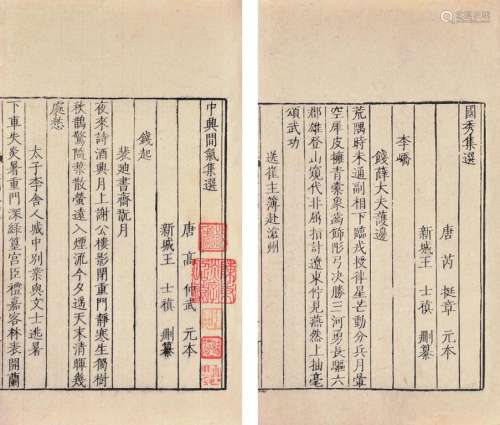 國秀集選
唐 芮 挺章 元本
新城王 士禎 刪纂
李嶠
餞薛大夫護邊
荒隅時未通副相下臨戎授律星芒動分兵月暈
空犀皮擁青橐象齒飾彫弓決勝三河勇長驅六
郡雄登山窺代北屈指計遼東佇見燕然上抽毫
頌武功
送崔主簿赴滄州
中興間氣集選
唐 高 仲武 元本
新城王 士禎 刪纂
錢起
裴迪書齋翫月
夜來詩酒興月上謝公樓影閉重門靜寒生獨樹
秋鵲驚隨葉散螢遠入煙流今夕遥天末清暉幾
處愁
太子李舍人城中別業與文士逃暑
下車失炎暑重門深緑篁宮臣禮嘉客林表開蘭